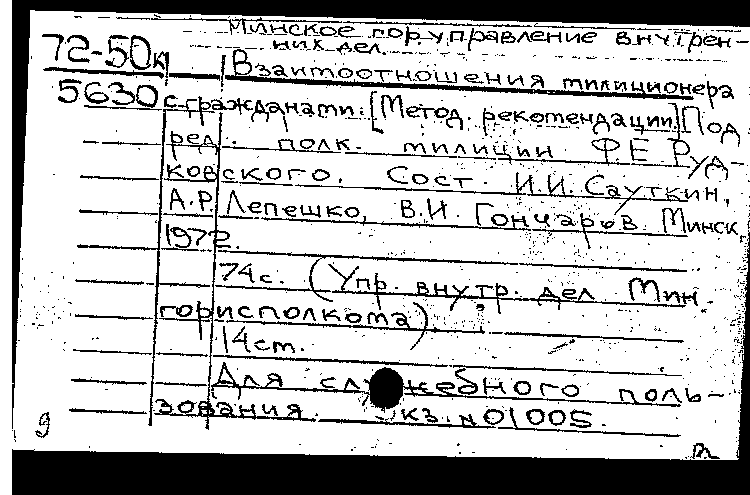 Минское гор. управление внутрен-
них дел.
72-50к
Взаимоотношения милиционера
5630 с гражданами: [Метод. рекомендации] [Под
ред. полк. милиции Ф.Е. Руд-
ковского. Сост. И.И. Сауткин,
А.Р. Лепешко, В.И. Гончаров. Минск,
1972.
74с. (Упр. внутр. дел Мин.
горисполкома).
14см.
Для служебного поль-
зования. Экз. №01005.
9